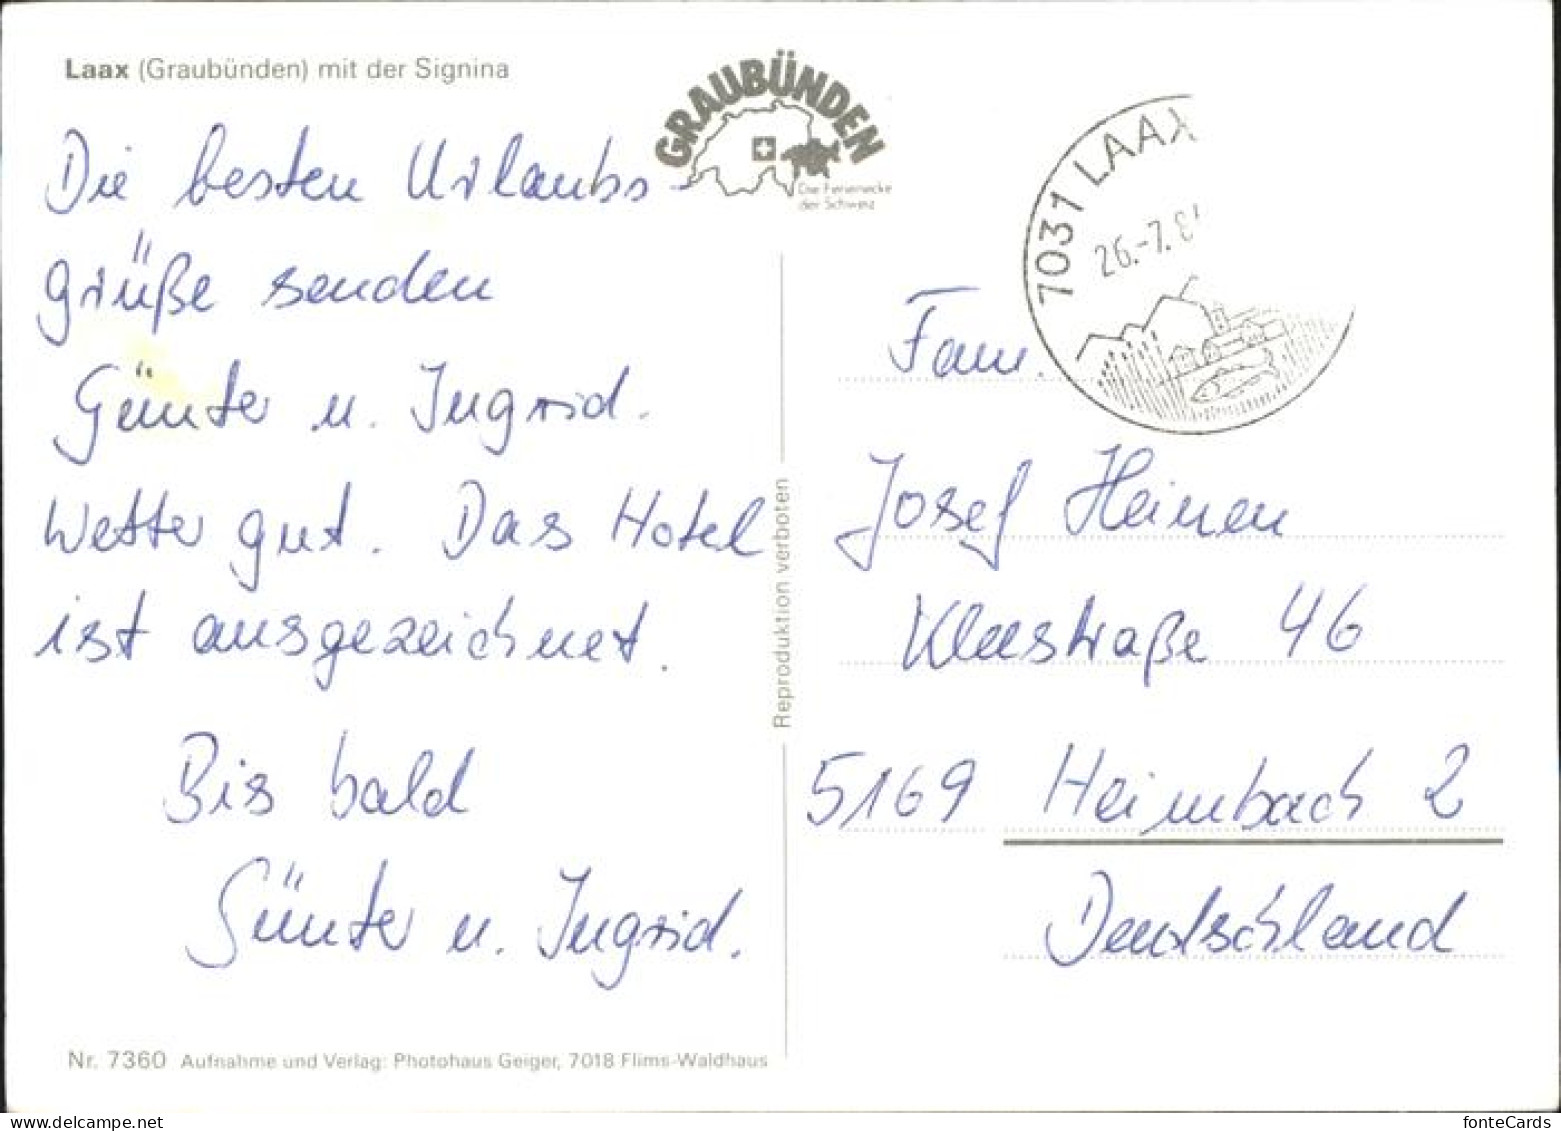 Laax (Graubünden) mit der Signina
GRAUBÜNDEN
Die Ferienecke
der Schweiz
7031 LAAX
26.-7.8
Die besten Urlaubs-
grüße senden
Günter u. Ingrid.
Wetter gut. Das Hotel
ist ausgezeichnet.
Bis bald
Günter u. Ingrid.
Reproduktion verboten
Fam.
Josef Heinen
Kleestraße 46
5169 Heimbach 2
Deutschland
Nr. 7360 Aufnahme und Verlag: Photohaus Geiger, 7018 Flims-Waldhaus
www.delcampe.net
fonteCards